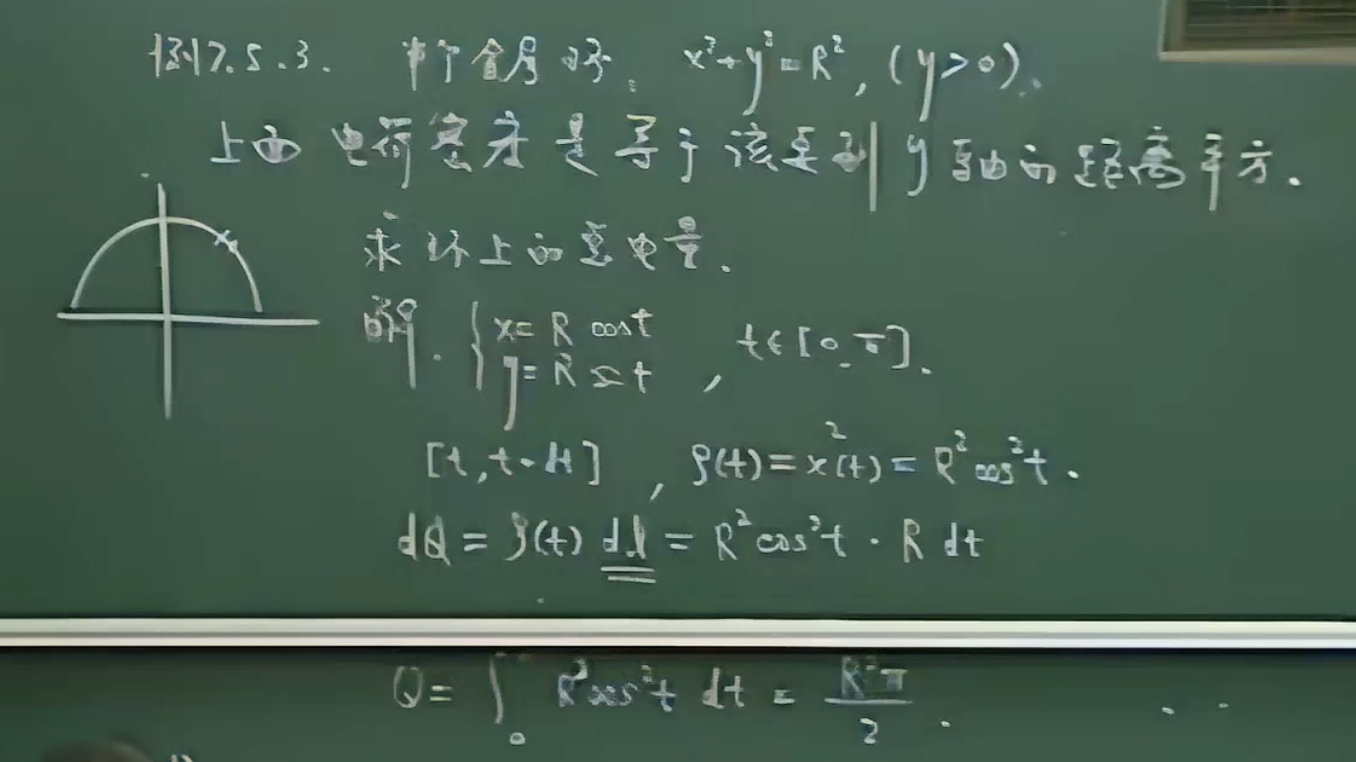 例7.5.3. 半个金属环, x²+y²=R², (y>0).
上面电荷密度是等于该点到y轴的距离平方.
求环上的总电量.
解. { x=R cos t
y=R sin t , t∈[0,π].
[t,t+dt] , ρ(t)=x²(t)=R²cos²t.
dQ=ρ(t) dl=R²cos²t·R dt
Q=∫₀ R³cos²t dt = R³π/2 .